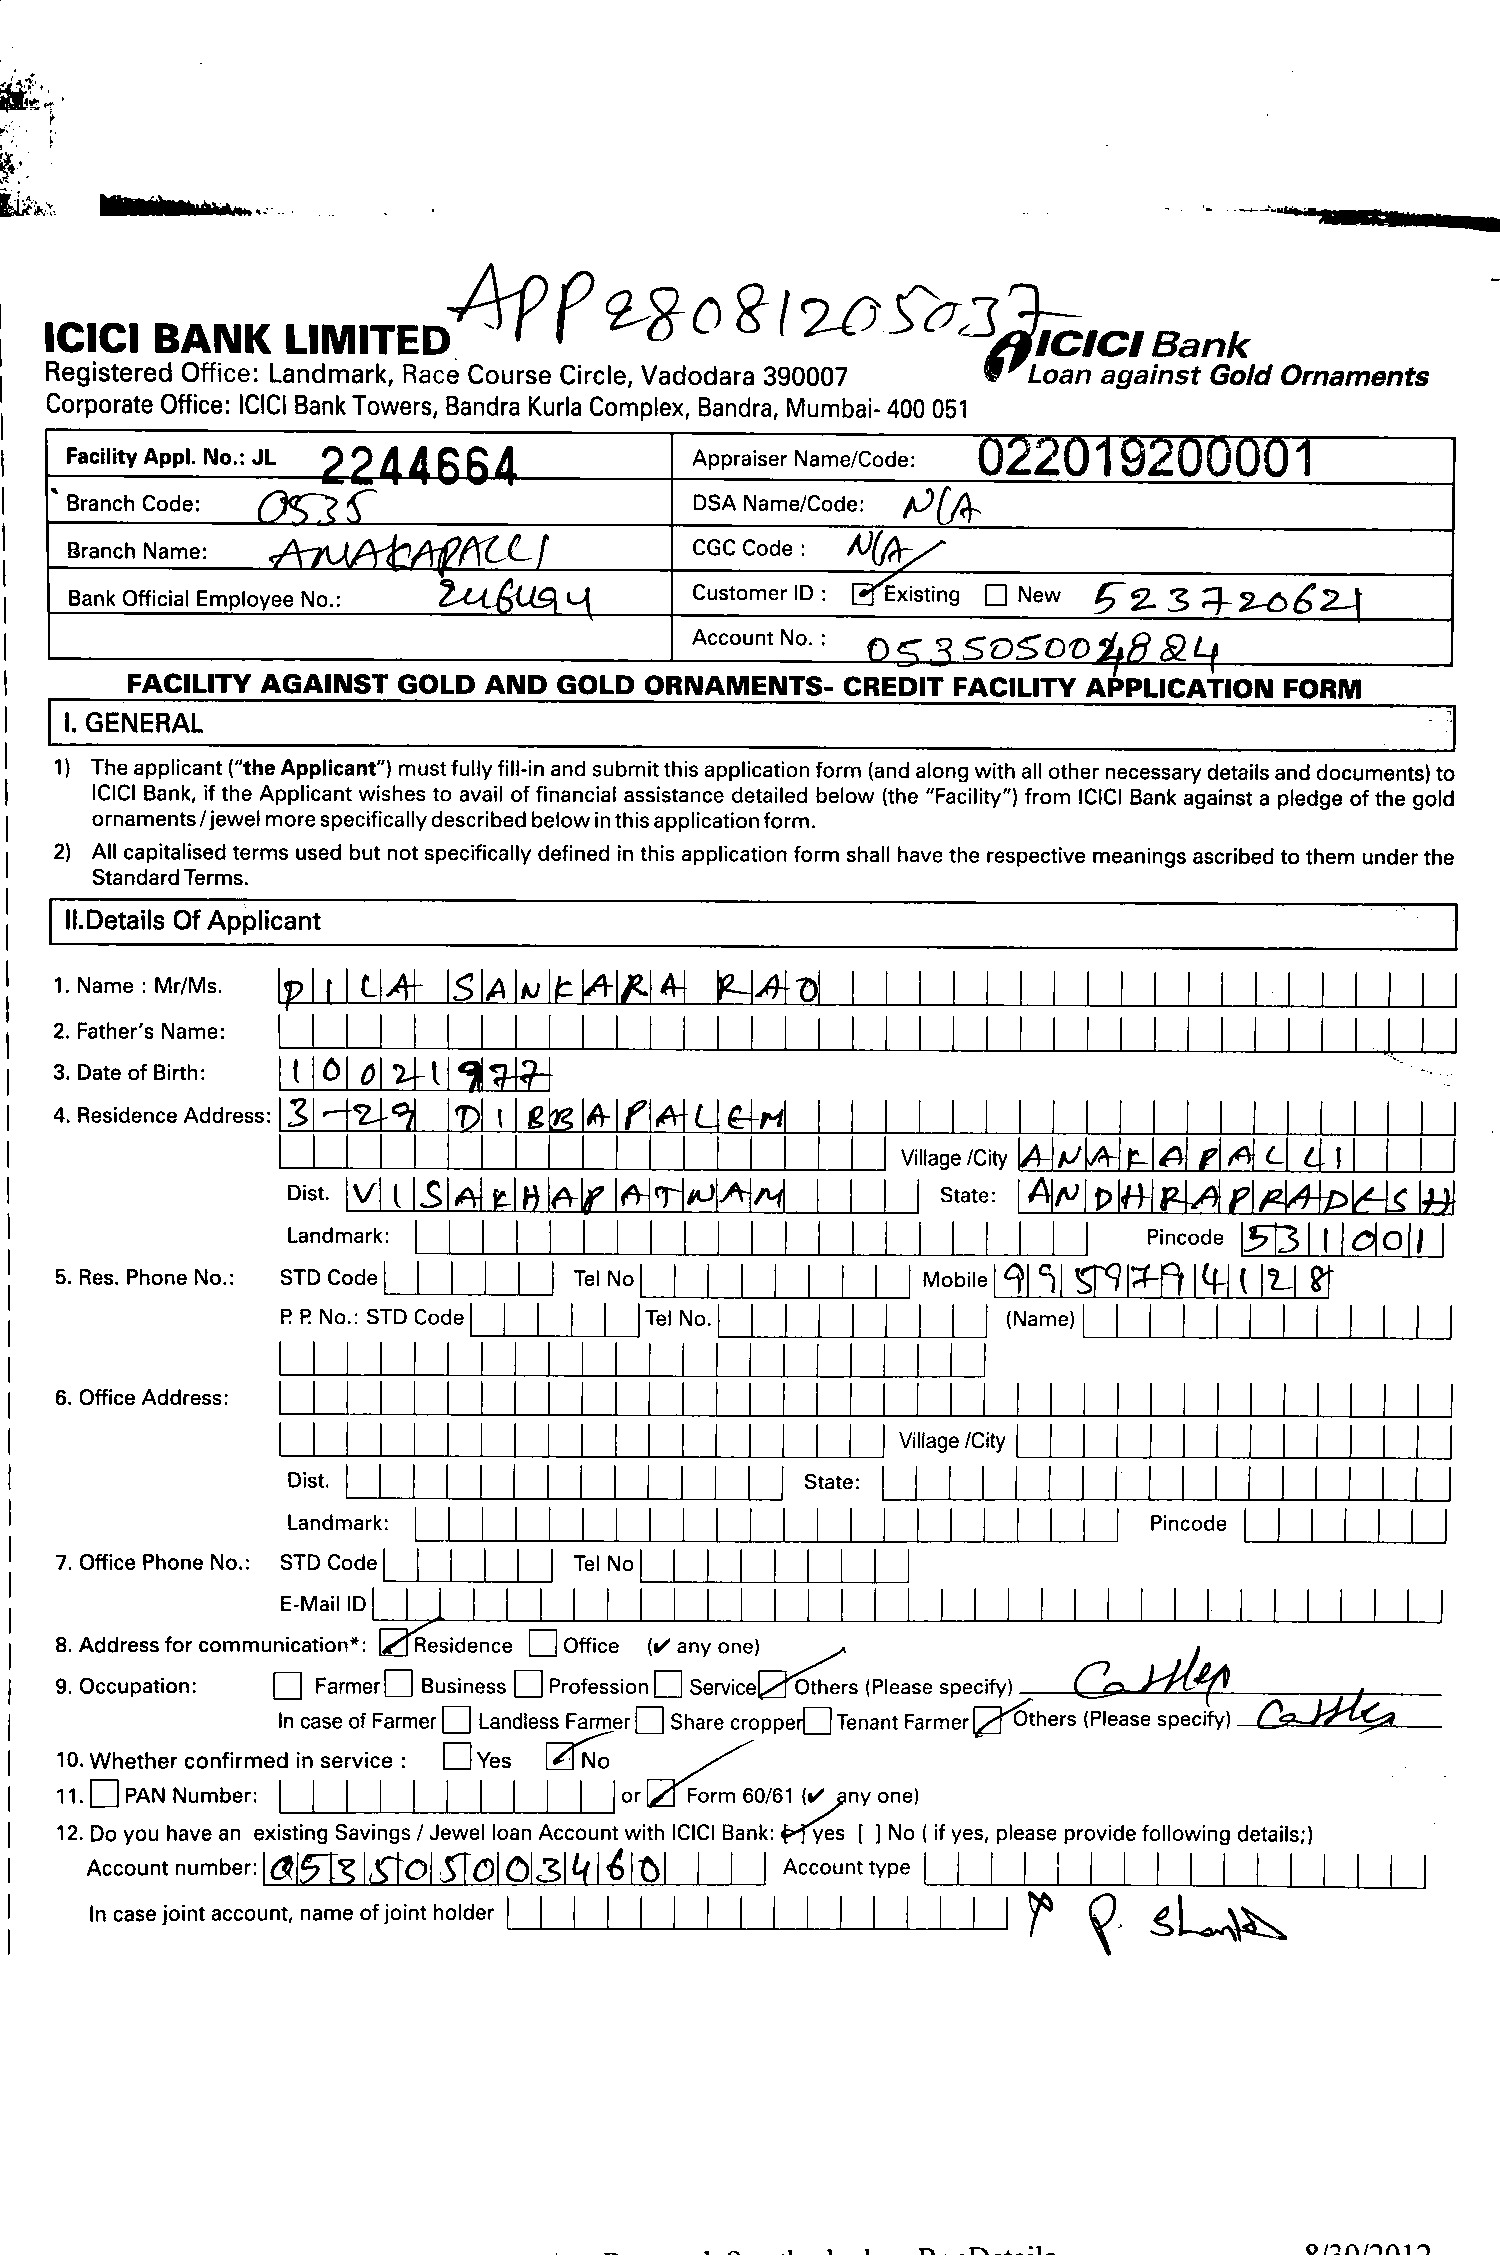 APP28081205037
ICICI BANK LIMITED
ICICI Bank
Registered Office: Landmark, Race Course Circle, Vadodara 390007
Loan against Gold Ornaments
Corporate Office: ICICI Bank Towers, Bandra Kurla Complex, Bandra, Mumbai- 400 051
Facility Appl. No.: JL 2244664 Appraiser Name/Code: 022019200001
Branch Code: 0535 DSA Name/Code: N/A
Branch Name: ANAKAPALLI CGC Code : N/A
Bank Official Employee No.: Customer ID : Existing New 523720621
Account No. : 053505004884
FACILITY AGAINST GOLD AND GOLD ORNAMENTS- CREDIT FACILITY APPLICATION FORM
I. GENERAL
1) The applicant ("the Applicant") must fully fill-in and submit this application form (and along with all other necessary details and documents) to
ICICI Bank, if the Applicant wishes to avail of financial assistance detailed below (the "Facility") from ICICI Bank against a pledge of the gold
ornaments / jewel more specifically described below in this application form.
2) All capitalised terms used but not specifically defined in this application form shall have the respective meanings ascribed to them under the
Standard Terms.
II.Details Of Applicant
1. Name : Mr/Ms. PILA SANKARA RAO
2. Father's Name:
3. Date of Birth: 10021977
4. Residence Address: 3-29 DIBBAPALEM
Village /City ANAKAPALLI
Dist. VISAKHAPATNAM State: ANDHRAPRADESH
Landmark: Pincode 531001
5. Res. Phone No.: STD Code Tel No Mobile 9959794128
P. P. No.: STD Code Tel No. (Name)
6. Office Address:
Village /City
Dist. State:
Landmark: Pincode
7. Office Phone No.: STD Code Tel No
E-Mail ID
8. Address for communication*: Residence Office (✔ any one)
9. Occupation: Farmer Business Profession Service Others (Please specify) Cattles
In case of Farmer Landless Farmer Share cropper Tenant Farmer Others (Please specify) Cattles
10. Whether confirmed in service : Yes No
11. PAN Number: or Form 60/61 (✔ any one)
12. Do you have an existing Savings / Jewel loan Account with ICICI Bank: yes [ ] No ( if yes, please provide following details;)
Account number: 053505003460 Account type
In case joint account, name of joint holder
P.
8/30/2012